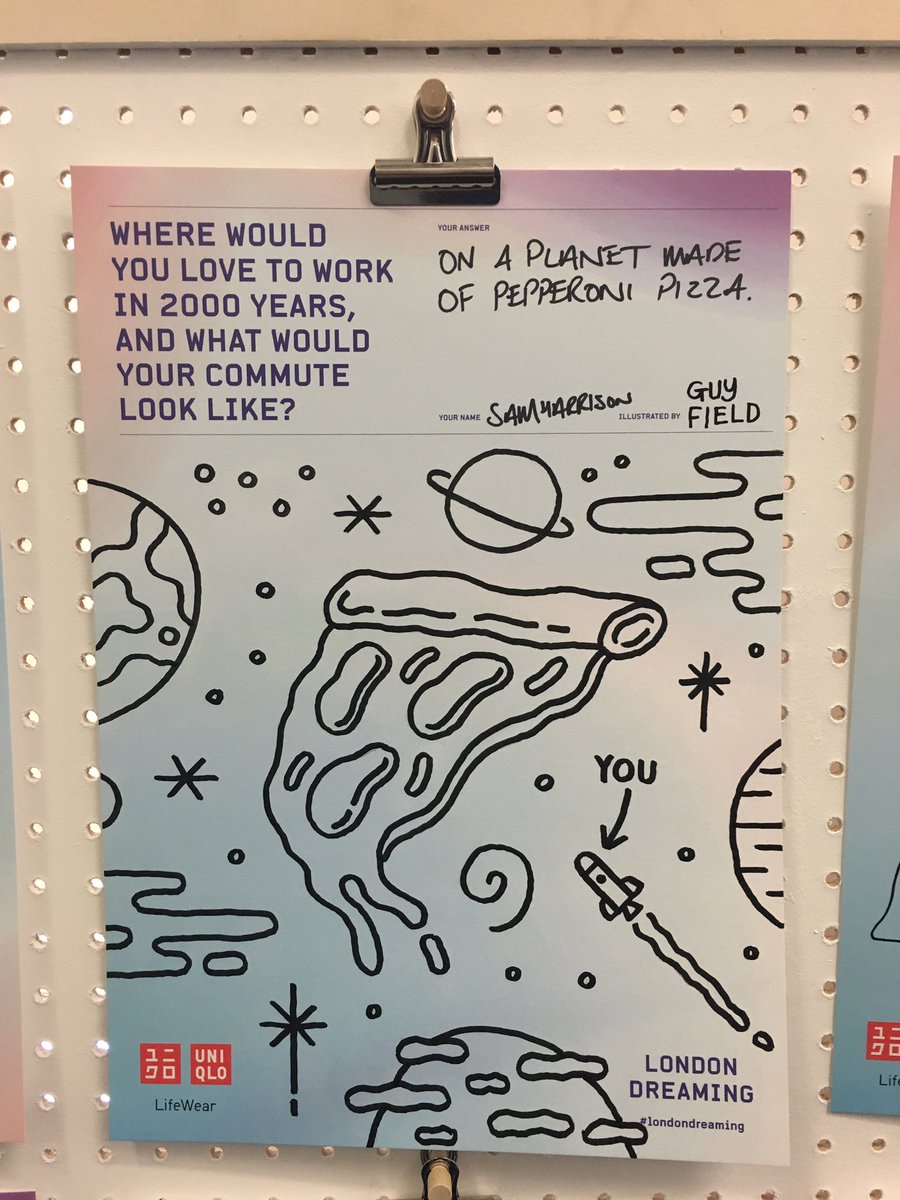 WHERE WOULD
YOU LOVE TO WORK
IN 2000 YEARS,
AND WHAT WOULD
YOUR COMMUTE
LOOK LIKE?
YOUR ANSWER
ON A PLANET MADE
OF PEPPERONI PIZZA.
YOUR NAME SAM HARRISON
ILLUSTRATED BY GUY
FIELD
YOU
ユニ
クロ
UNI
QLO
LifeWear
LONDON
DREAMING
#londondreaming
ユニ
クロ